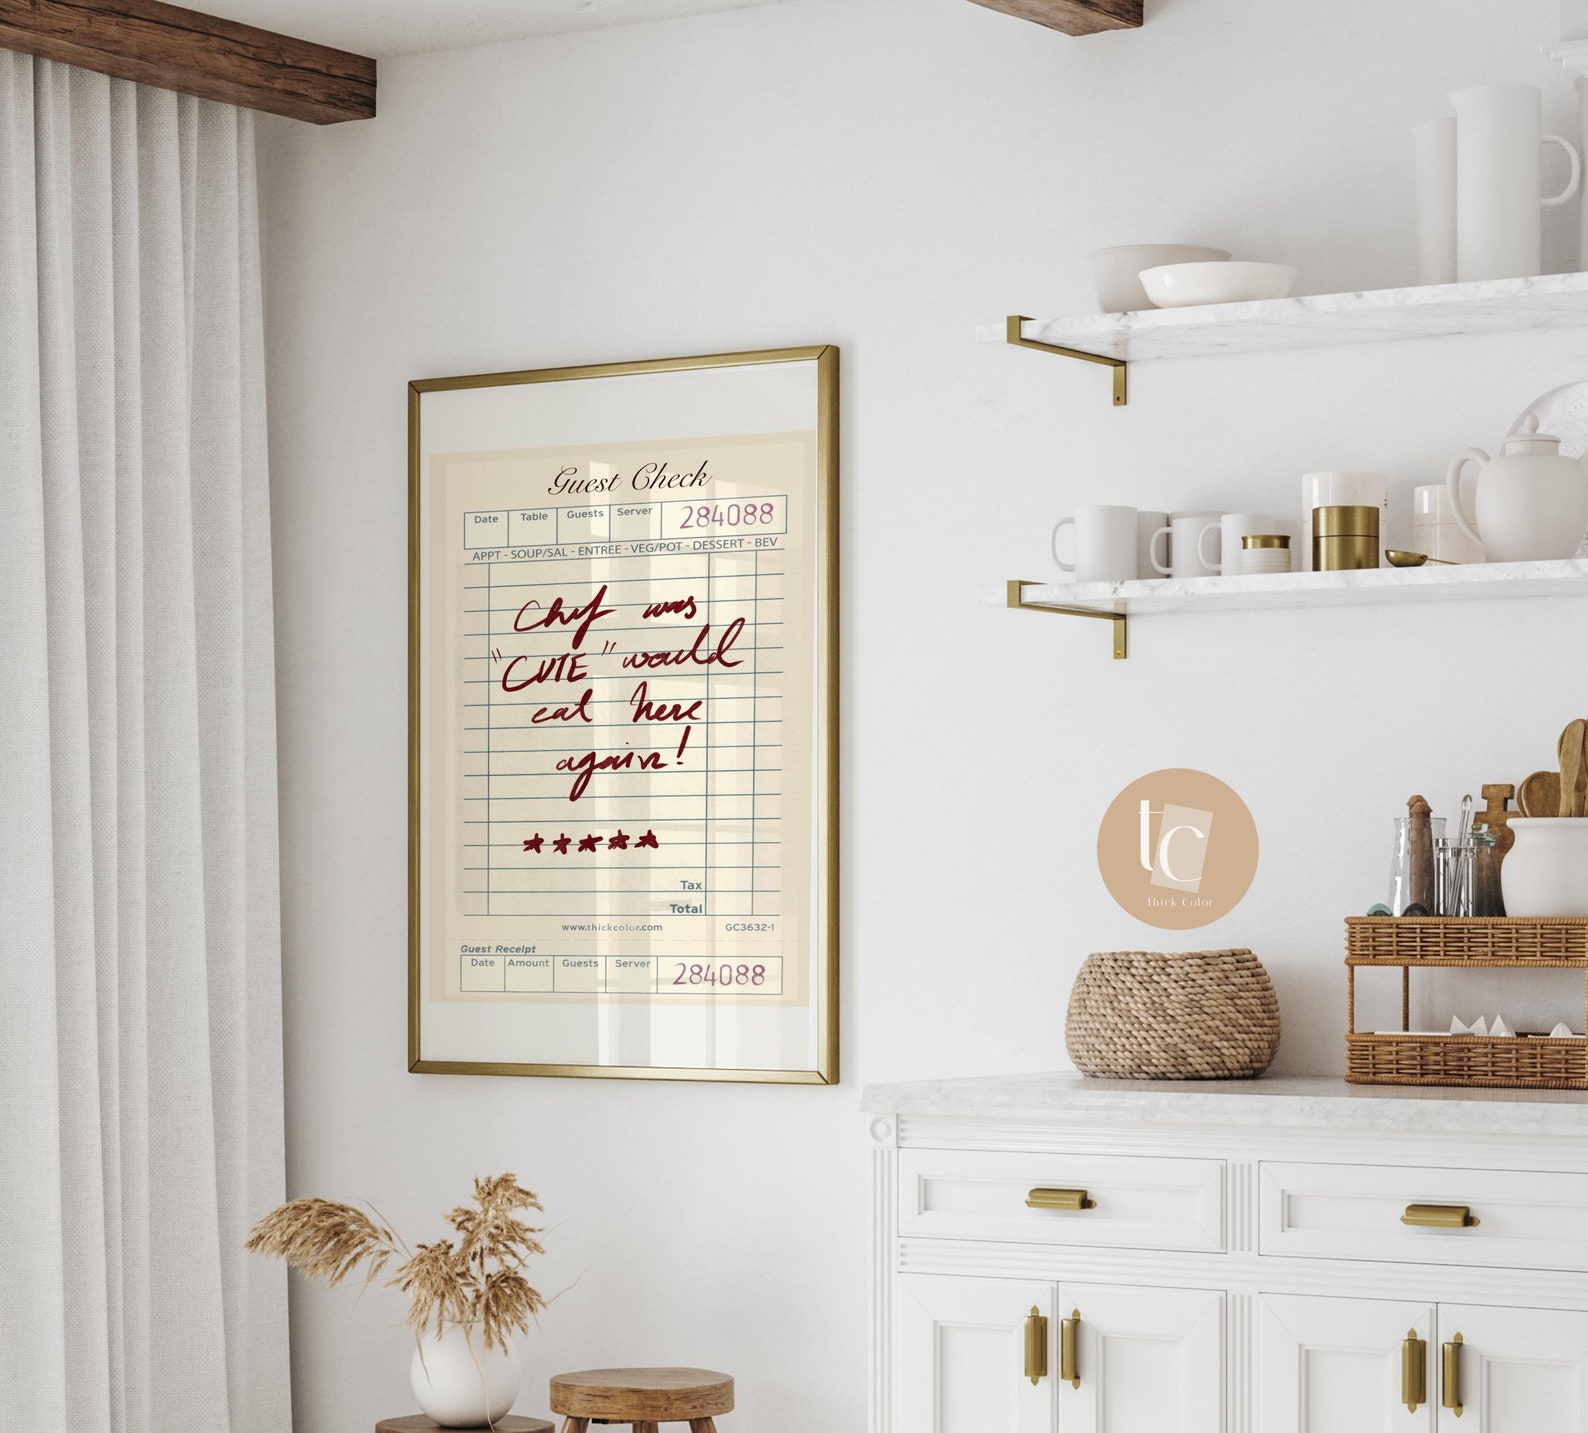 Guest Check
Date Table Guests Server 284088
APPT - SOUP/SAL - ENTREE - VEG/POT - DESSERT - BEV
Chef was
"CUTE" would
eat here
again!
★★★★★
Tax
Total
www.thickcolor.com GC3632-1
Guest Receipt
Date Amount Guests Server 284088
tc
Thick Color